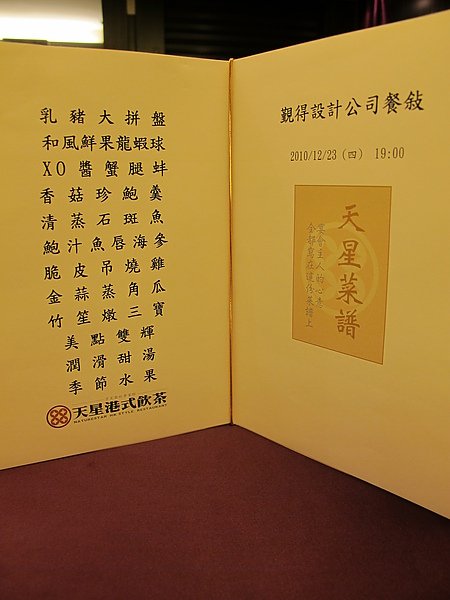 乳豬大拼盤
和風鮮果龍蝦球
XO醬蟹腿蚌
香菇珍鮑羹
清蒸石斑魚
鮑汁魚唇海參
脆皮吊燒雞
金蒜蒸角瓜
竹笙燉三寶
美點雙輝
潤滑甜湯
季節水果
天星港式飲茶
NATURESTAR HK-STYLE RESTAURANT
觀得設計公司餐敍
2010/12/23 (四) 19:00
天星菜譜
宴會主人的心意
全部寫在這份菜譜上